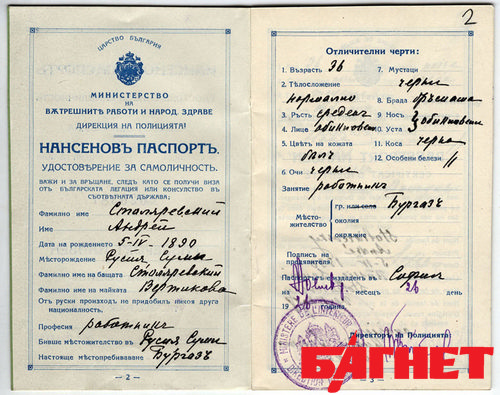 2
ЦАРСТВО БЪЛГАРИЯ
МИНИСТЕРСТВО
НА
ВѪТРЕШНИТЕ РАБОТИ И НАРОД. ЗДРАВЕ
ДИРЕКЦИЯ НА ПОЛИЦИЯТА
НАНСЕНОВЪ ПАСПОРТЪ.
УДОСТОВѢРЕНИЕ ЗА САМОЛИЧНОСТЬ.
ВАЖИ И ЗА ВРЪЩАНЕ, СЛЕДЪ КАТО СЕ ПОЛУЧИ ВИЗА
ОТЪ БЪЛГАРСКАТА ЛЕГАЦИЯ ИЛИ КОНСУЛСТВО ВЪ
СЪОТВѢТНАТА ДЪРЖАВА;
Фамилно име Столяревский
Име Андрей
Дата на рождението 5-IV-1890
Мѣсторождение Русия Сумы
Фамилно име на бащата Столяревский
Фамилно име на майката Вертикова
Отъ руски произходъ не придобилъ никоя друга
националность.
Професия работникъ
Бивше мѣстожителство въ Русия Сумы
Настояще мѣстопребиваване Бургазъ
— 2 —
Отличителни черти:
1. Възрасть 36
2. Тѣлосложение
нормално
3. Ръстъ среденъ
4. Лице обикновено
5. Цвѣтъ на кожата
бѣлъ
6. Очи черни
7. Мустаци
черни
8. Брада
9. Носъ
10. Уста } обикновени
11. Коса черна
12. Особени белези "
Занятие работникъ
Мѣстожителство
гр. или село Бургазъ
околия
окръжие
Подпись на
предявителя
Паспортътъ е издаденъ въ София
на месецъ 26 день
19
Директоръ на Полицията:
— 3 —
БАГНЕТ